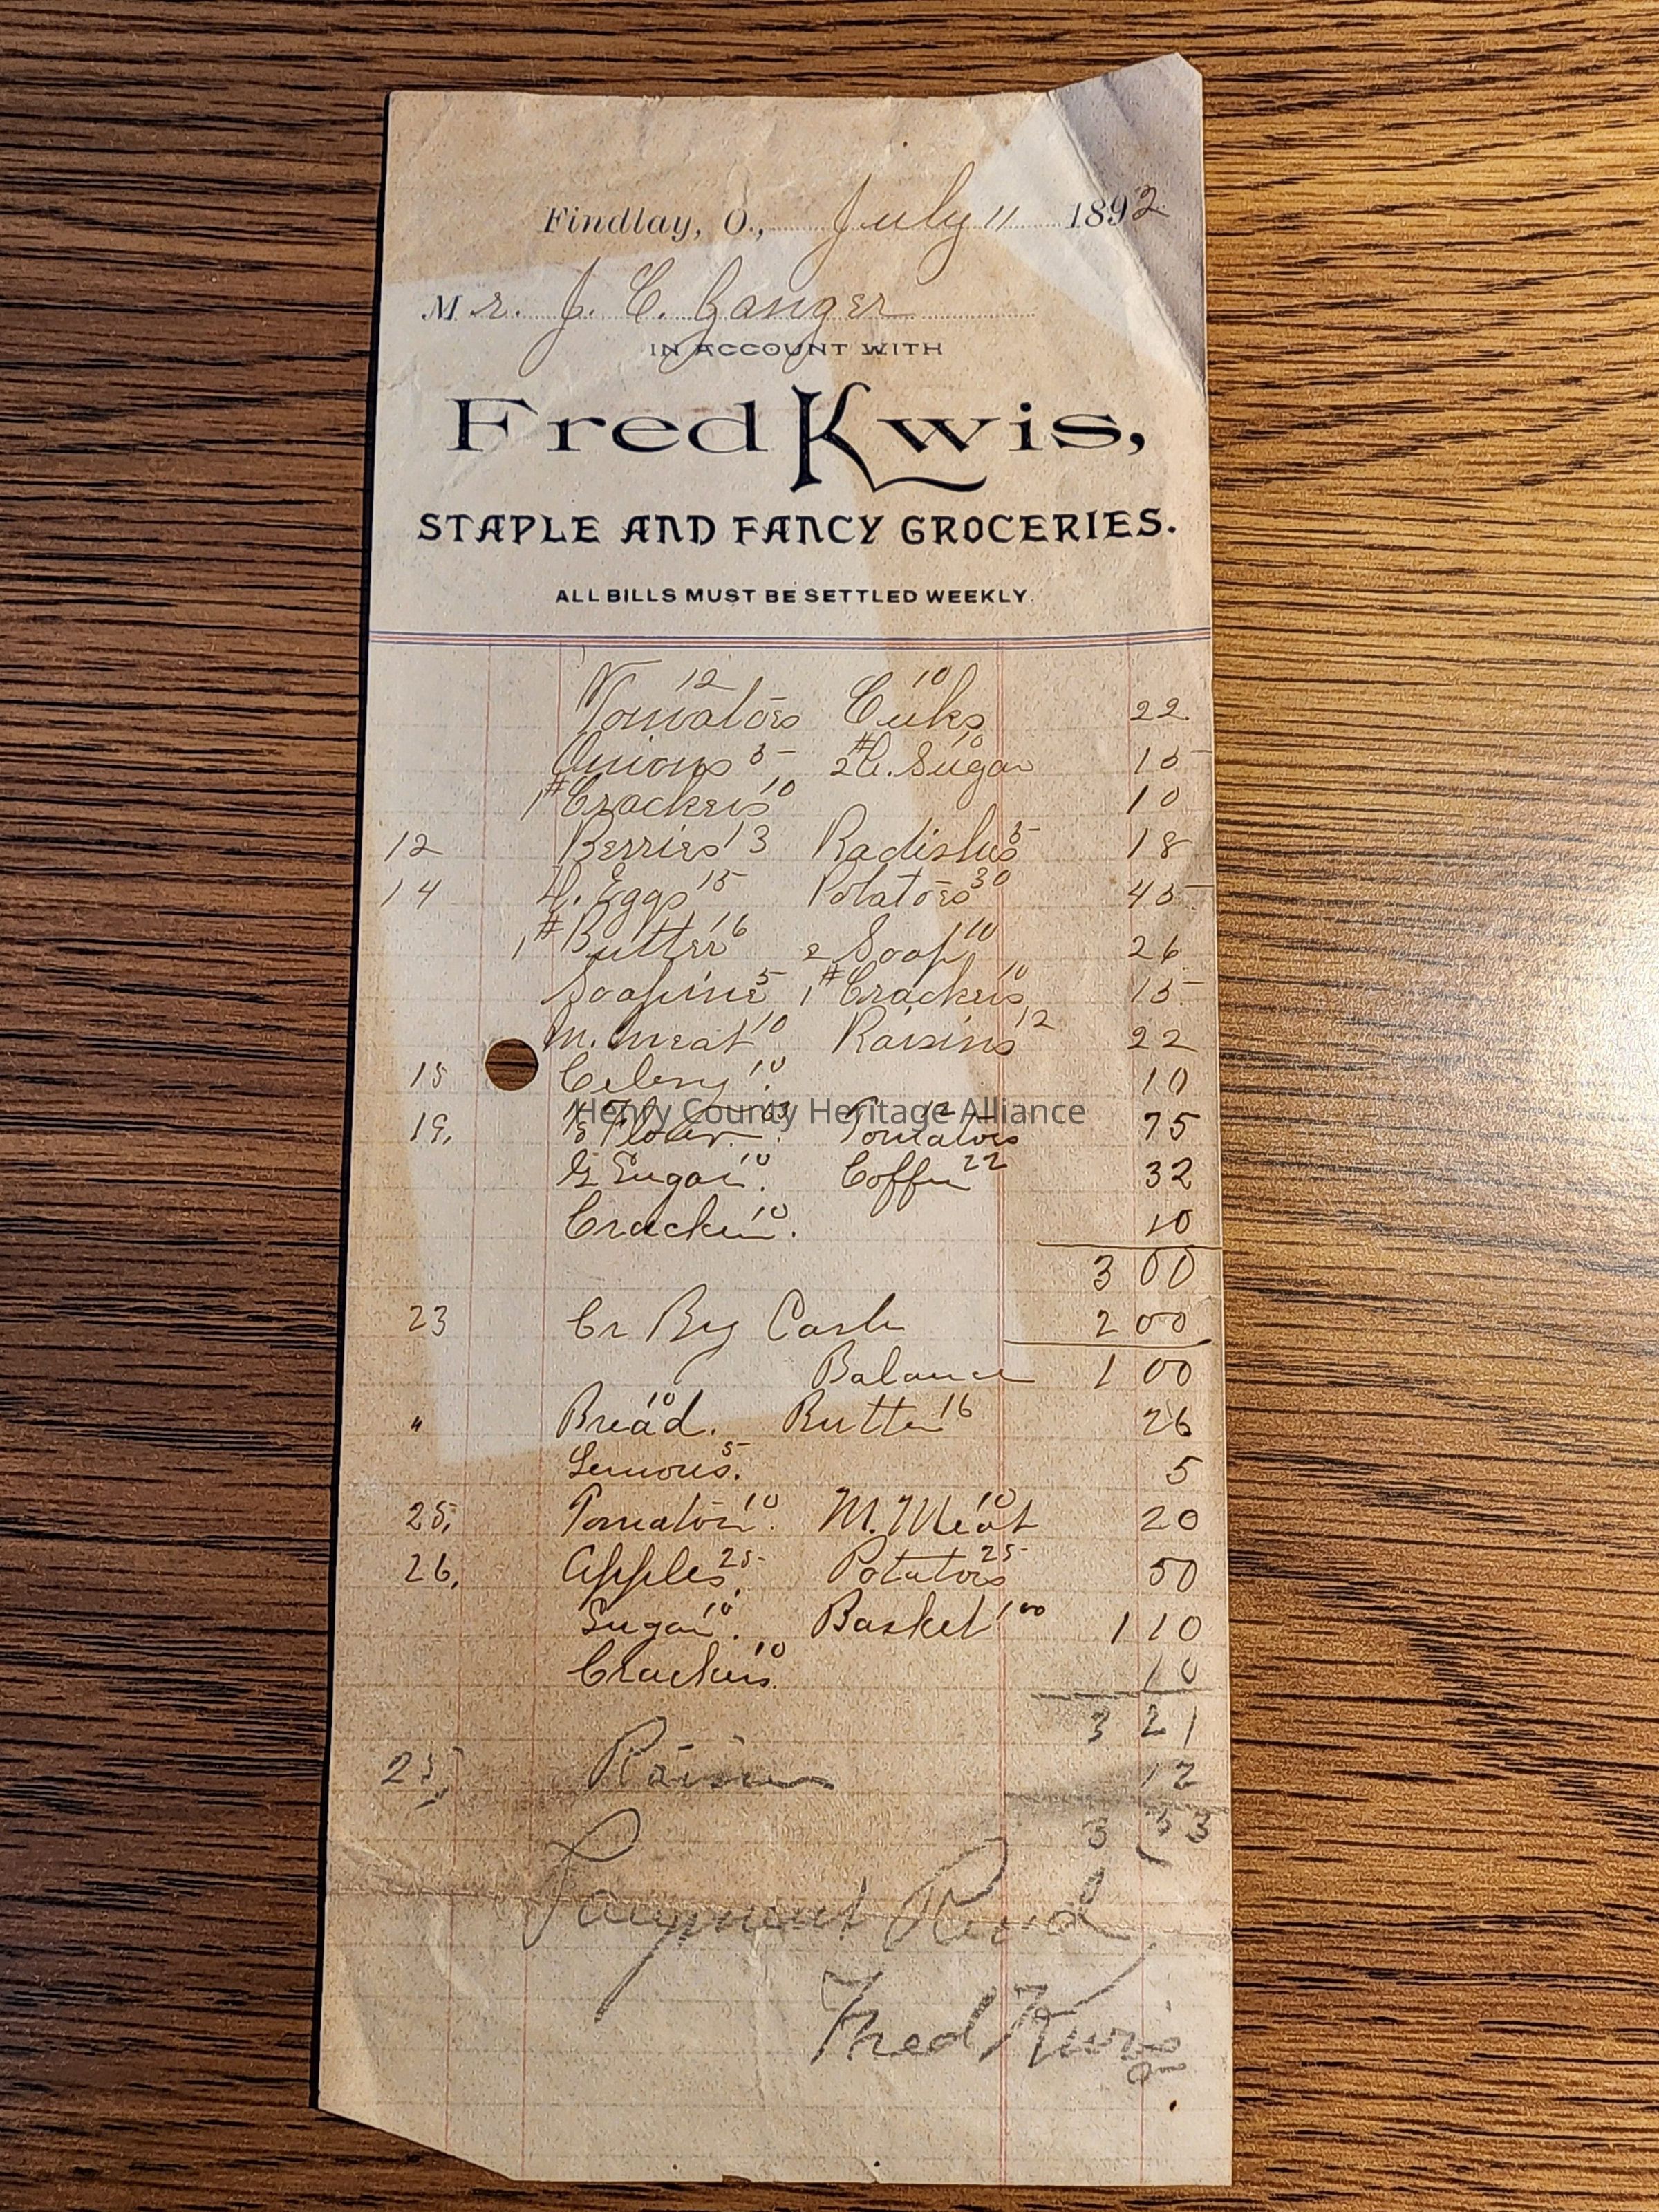 Findlay, O., July 11 1892
Mr. J. C. Ganger
IN ACCOUNT WITH
Fred Kwis,
STAPLE AND FANCY GROCERIES.
ALL BILLS MUST BE SETTLED WEEKLY.
Tomatoes 12 Cuks 10 22
Onions 5 2# C. Sugar 10 15
1# Crackers 10 10
12 Berries 13 Radishes 5 18
14 D. Eggs 15 Potatoes 30 45
1# Butter 16 2 Soap 10 26
Soapine 5 1# Crackers 10 15
M. Meat 10 Raisins 12 22
15 Celery 10 10
Henry County Heritage Alliance
19, 1/8 Flour 63 Tomatoes 12 75
G Sugar 10 Coffee 22 32
Crackers 10 10
3 00
23 Cr By Cash 2 00
Balance 1 00
" Bread 10 Butter 16 26
Lemons 5 5
25, Tomatoes 10 M. Meat 10 20
26, Apples 25 Potatoes 25 50
Sugar 10 Basket 1 00 1 10
Crackers 10 10
3 21
Raisin 12
3 33
Payment Recd
Fred Kwis